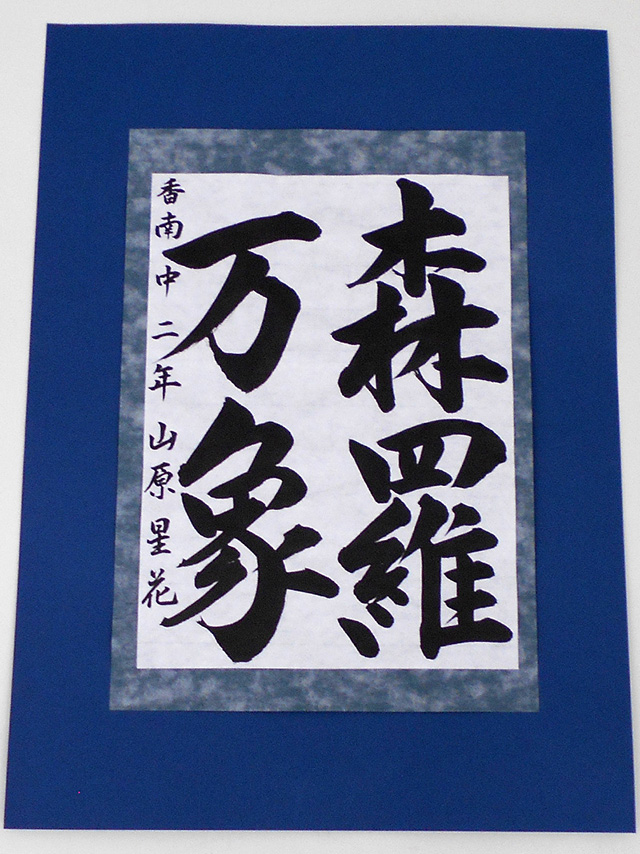 森羅
万象
香南中二年山原星花